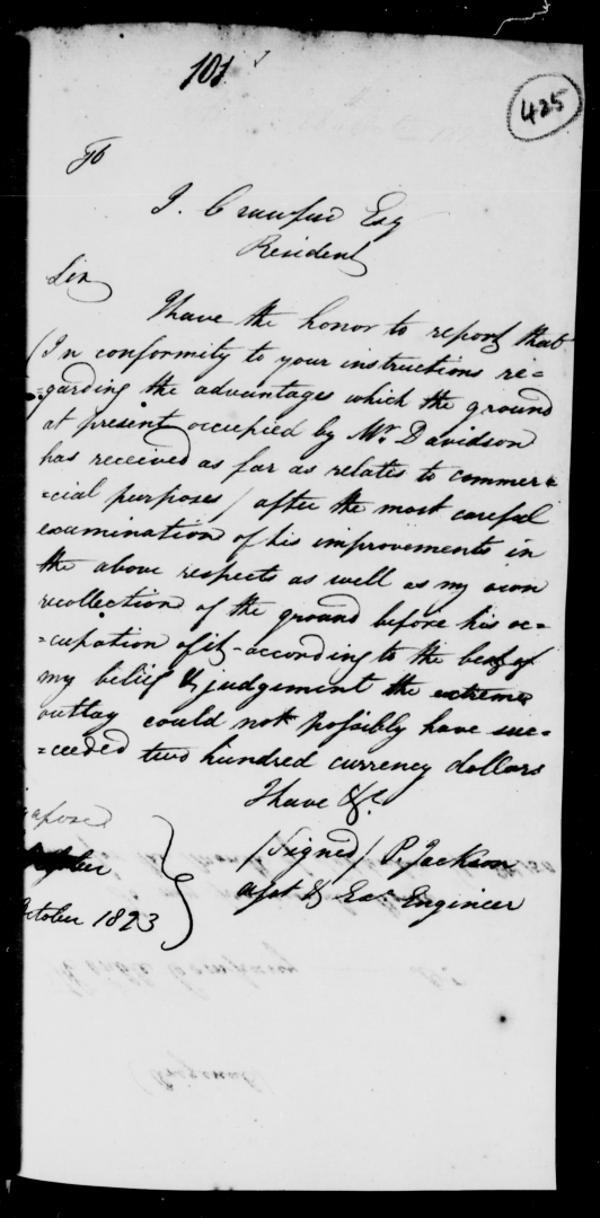 101
425
To
J. Crawfurd Esq
Resident
Sir
I have the honor to report that
(In conformity to your instructions re=
=garding the advantages which the ground
at present occupied by Mr. Davidson
has received as far as relates to commer=
=cial purposes / after the most careful
examination of his improvements in
the above respects as well as my own
recollection of the ground before his oc=
=cupation of it - according to the best of
my belief & judgement the extreme
outlay could not possibly have suc=
=ceeded two hundred currency dollars
I have &c
apore
/Signed/ P. Jackson
asst & Exe. Engineer
October 1823